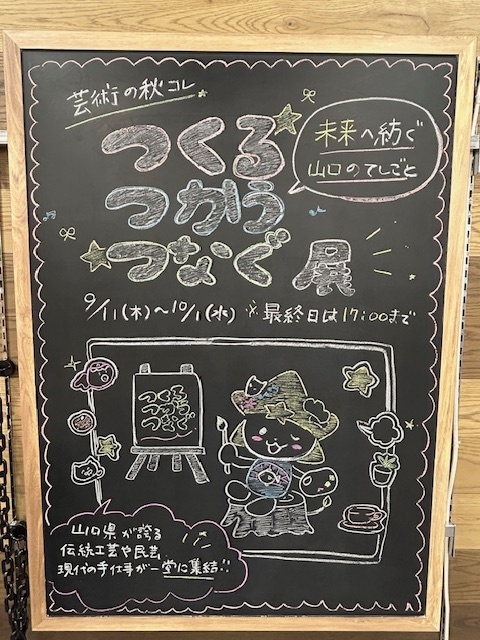 芸術の秋コレ
つくる
つかう
つなぐ展
未来へ紡ぐ
山口のてしごと
9/11(木)〜10/1(水) ※最終日は17:00まで
つくる
つかう
つなぐ
山口県が誇る
伝統工芸や民芸、
現代の手仕事が一堂に集結!!